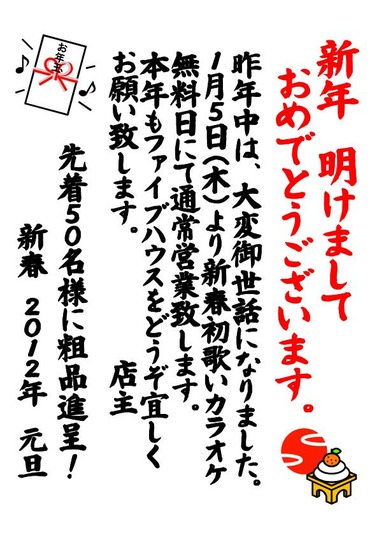 新年 明けまして
おめでとうございます。
昨年中は、大変御世話になりました。
1月5日(木)より新春初歌いカラオケ
無料日にて通常営業致します。
本年もファイブハウスをどうぞ宜しく
お願い致します。
店主
先着50名様に粗品進呈!
新春 2012年 元旦
お年玉